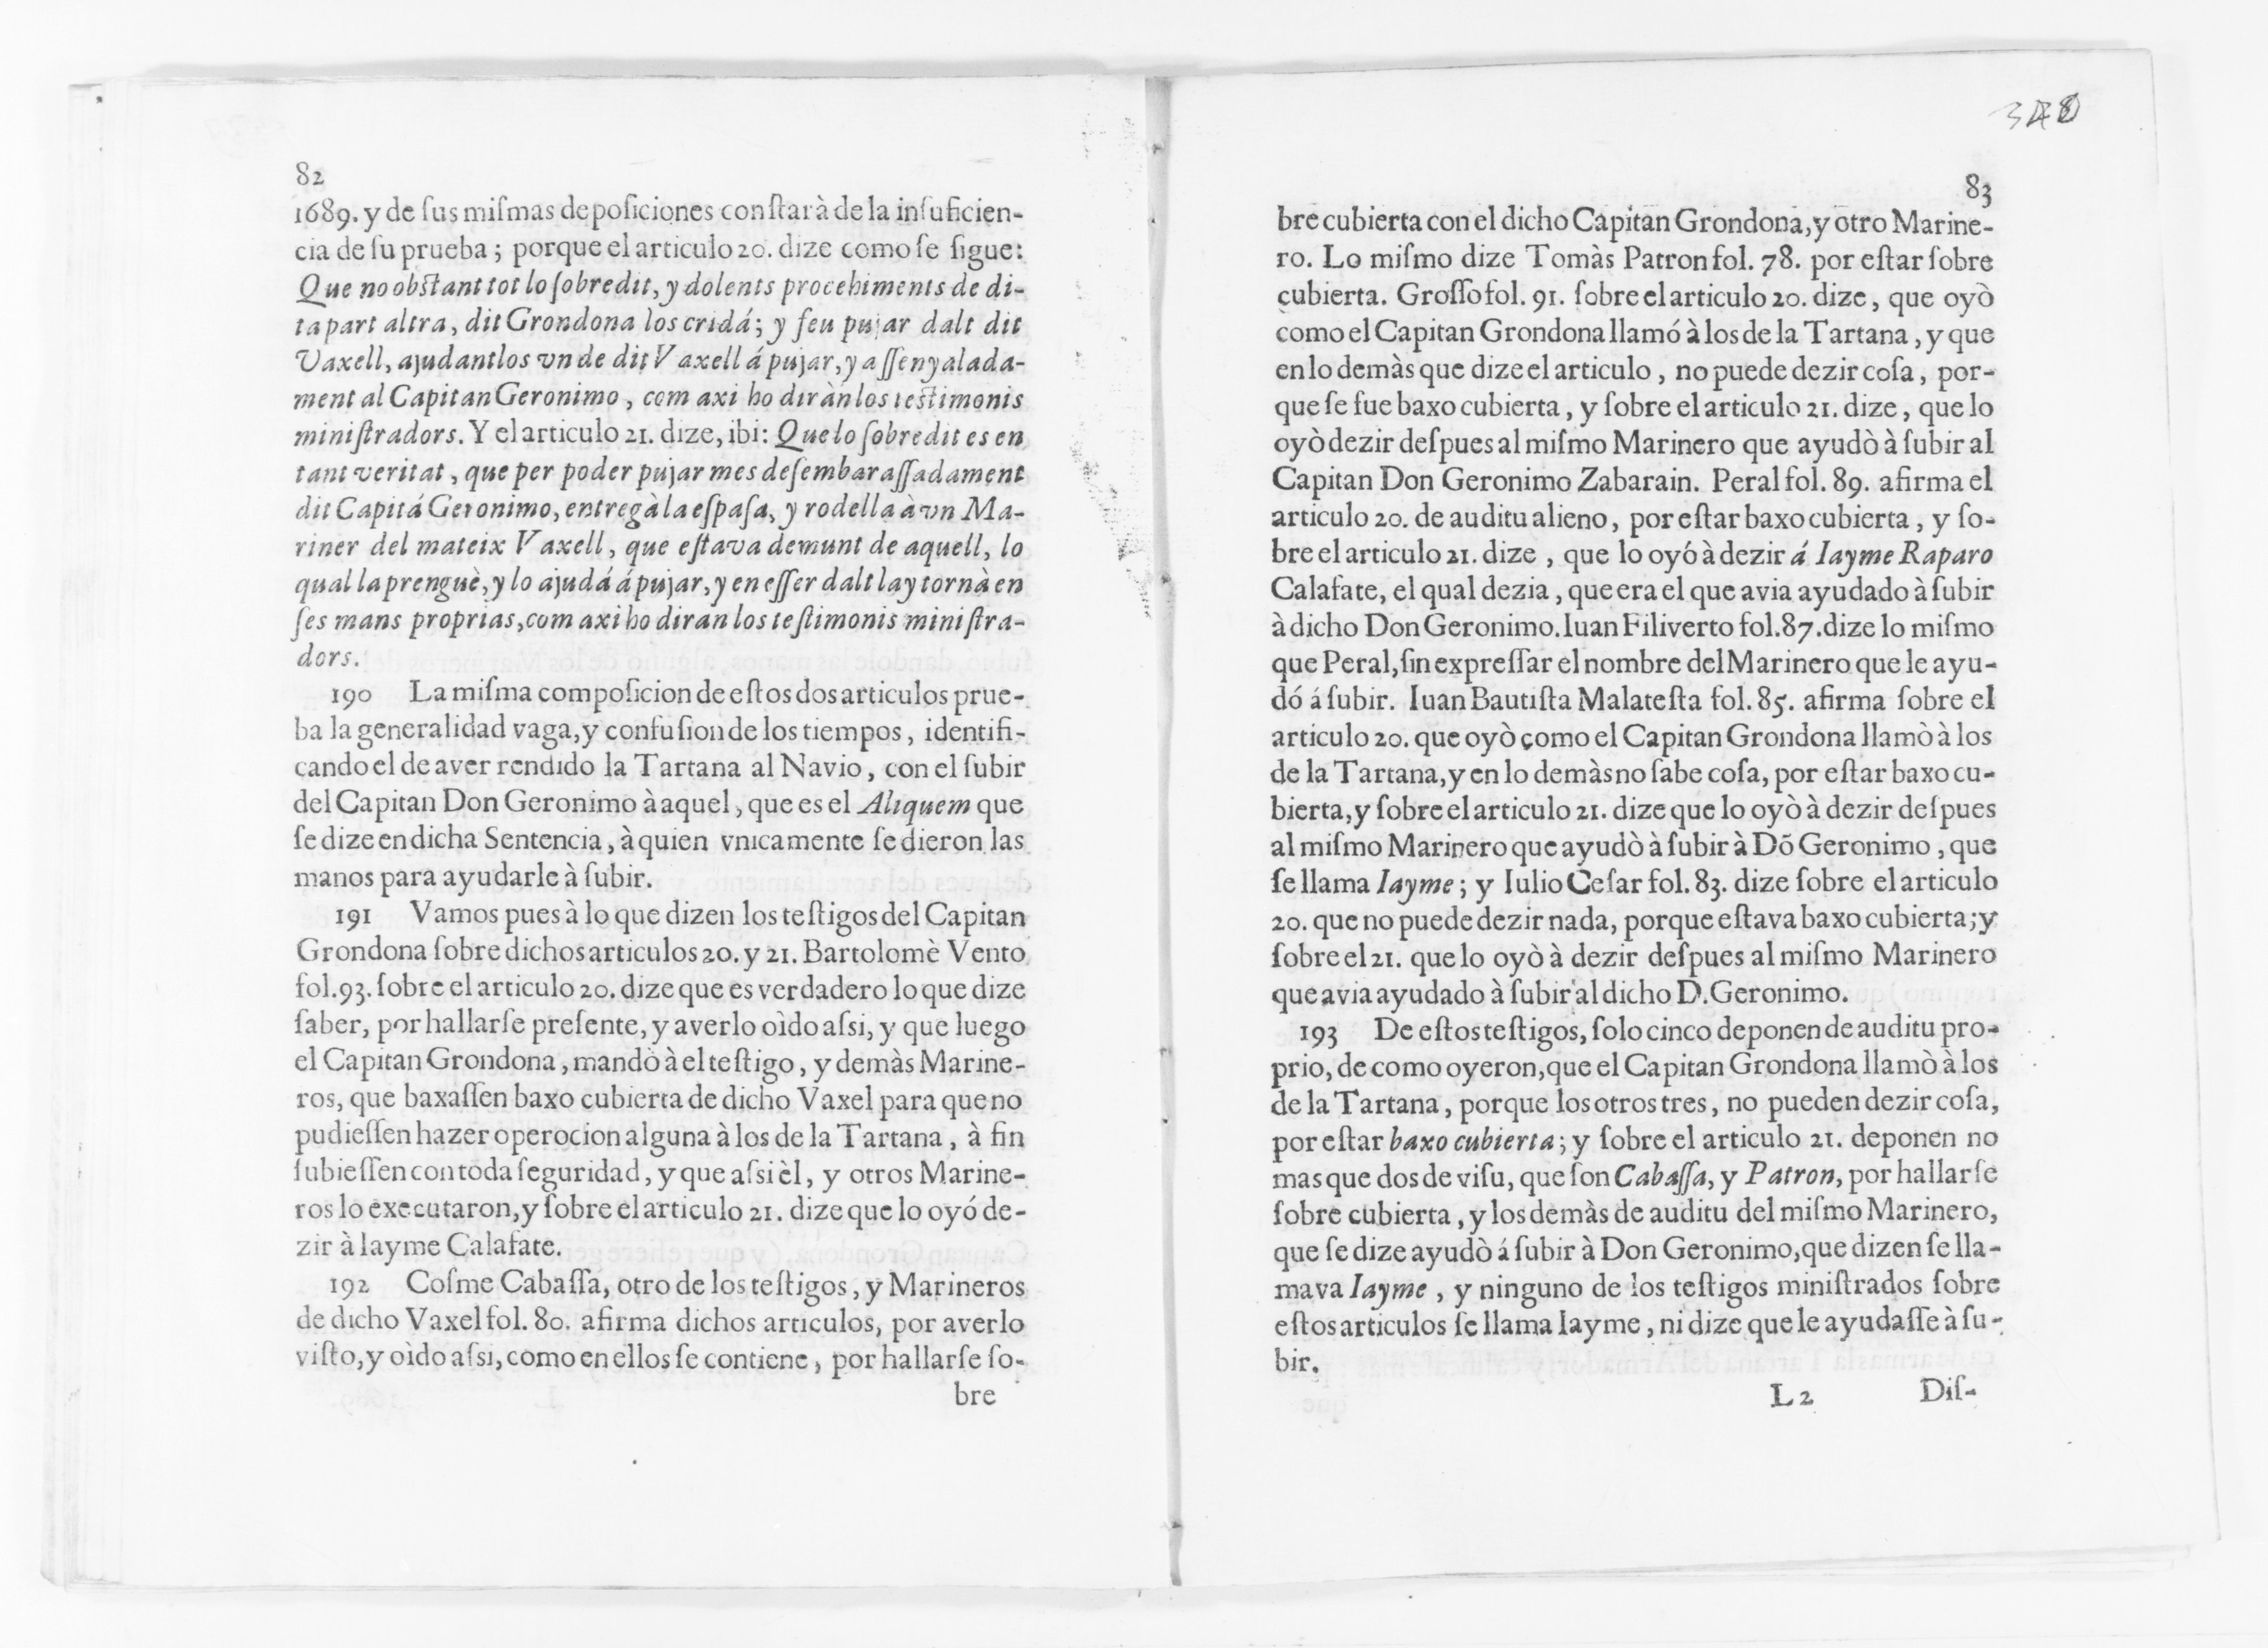 82
1689. y de ſus miſmas depoſiciones conſtarà de la inſuficien-
cia de ſu prueba ; porque el articulo 20. dize como ſe ſigue:
Que no obſtant tot lo ſobredit, y dolents procehiments de di-
ta part altra, dit Grondona los cridá; y feu pujar dalt dit
Vaxell, ajudantlos vn de dit Vaxell á pujar, y aſſenyalada-
ment al Capitan Geronimo, com axi ho diràn los teſtimonis
miniſtradors. Y el articulo 21. dize, ibi: Que lo ſobredit es en
tant veritat, que per poder pujar mes deſembaraſſadament
dit Capitá Geronimo, entregà la eſpaſa, y rodella à vn Ma-
riner del mateix Vaxell, que eſtava demunt de aquell, lo
qual la prenguè, y lo ajudá á pujar, y en eſſer dalt lay tornà en
ſes mans proprias, com axi ho diran los teſtimonis miniſtra-
dors.
190 La miſma compoſicion de eſtos dos articulos prue-
ba la generalidad vaga, y confuſion de los tiempos, identifi-
cando el de aver rendido la Tartana al Navio, con el ſubir
del Capitan Don Geronimo à aquel, que es el Aliquem que
ſe dize en dicha Sentencia, à quien vnicamente ſe dieron las
manos para ayudarle à ſubir.
191 Vamos pues à lo que dizen los teſtigos del Capitan
Grondona ſobre dichos articulos 20. y 21. Bartolomè Vento
fol.93. ſobre el articulo 20. dize que es verdadero lo que dize
ſaber, por hallarſe preſente, y averlo oìdo aſsi, y que luego
el Capitan Grondona, mandò à el teſtigo, y demàs Marine-
ros, que baxaſſen baxo cubierta de dicho Vaxel para que no
pudieſſen hazer operocion alguna à los de la Tartana, à fin
ſubieſſen con toda ſeguridad, y que aſsi èl, y otros Marine-
ros lo executaron, y ſobre el articulo 21. dize que lo oyó de-
zir à Iayme Calafate.
192 Coſme Cabaſſa, otro de los teſtigos, y Marineros
de dicho Vaxel fol. 80. afirma dichos articulos, por averlo
viſto, y oìdo aſsi, como en ellos ſe contiene, por hallarſe ſo-
bre
83
bre cubierta con el dicho Capitan Grondona, y otro Marine-
ro. Lo miſmo dize Tomàs Patron fol. 78. por eſtar ſobre
cubierta. Groſſo fol. 91. ſobre el articulo 20. dize, que oyò
como el Capitan Grondona llamó à los de la Tartana, y que
en lo demàs que dize el articulo, no puede dezir coſa, por-
que ſe fue baxo cubierta, y ſobre el articulo 21. dize, que lo
oyò dezir deſpues al miſmo Marinero que ayudò à ſubir al
Capitan Don Geronimo Zabarain. Peral fol. 89. afirma el
articulo 20. de auditu alieno, por eſtar baxo cubierta, y ſo-
bre el articulo 21. dize, que lo oyó à dezir á Iayme Raparo
Calafate, el qual dezia, que era el que avia ayudado à ſubir
à dicho Don Geronimo. Iuan Filiverto fol.87. dize lo miſmo
que Peral, ſin expreſſar el nombre del Marinero que le ayu-
dó á ſubir. Iuan Bautiſta Malateſta fol. 85. afirma ſobre el
articulo 20. que oyò como el Capitan Grondona llamò à los
de la Tartana, y en lo demàs no ſabe coſa, por eſtar baxo cu-
bierta, y ſobre el articulo 21. dize que lo oyò à dezir deſpues
al miſmo Marinero que ayudò à ſubir à Dõ Geronimo, que
ſe llama Iayme; y Iulio Ceſar fol. 83. dize ſobre el articulo
20. que no puede dezir nada, porque eſtava baxo cubierta; y
ſobre el 21. que lo oyò à dezir deſpues al miſmo Marinero
que avia ayudado à ſubir al dicho D. Geronimo.
193 De eſtos teſtigos, ſolo cinco deponen de auditu pro-
prio, de como oyeron, que el Capitan Grondona llamò à los
de la Tartana, porque los otros tres, no pueden dezir coſa,
por eſtar baxo cubierta; y ſobre el articulo 21. deponen no
mas que dos de viſu, que ſon Cabaſſa, y Patron, por hallarſe
ſobre cubierta, y los demàs de auditu del miſmo Marinero,
que ſe dize ayudò á ſubir à Don Geronimo, que dizen ſe lla-
mava Iayme, y ninguno de los teſtigos miniſtrados ſobre
eſtos articulos ſe llama Iayme, ni dize que le ayudaſſe à ſu-
bir.
L 2 Diſ-